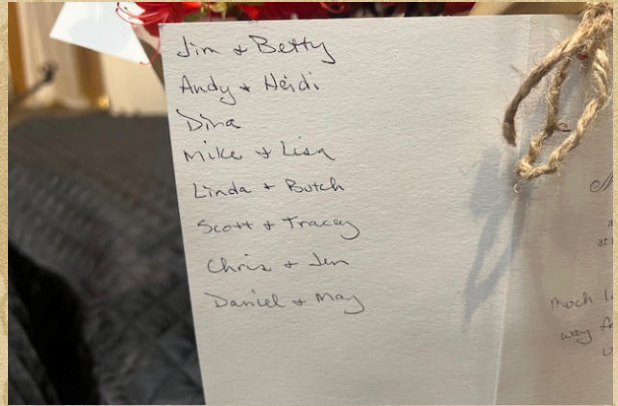 Jim + Betty
Andy + Heidi
Dina
Mike + Lisa
Linda + Butch
Scott + Tracey
Chris + Jen
Daniel + May
much
way